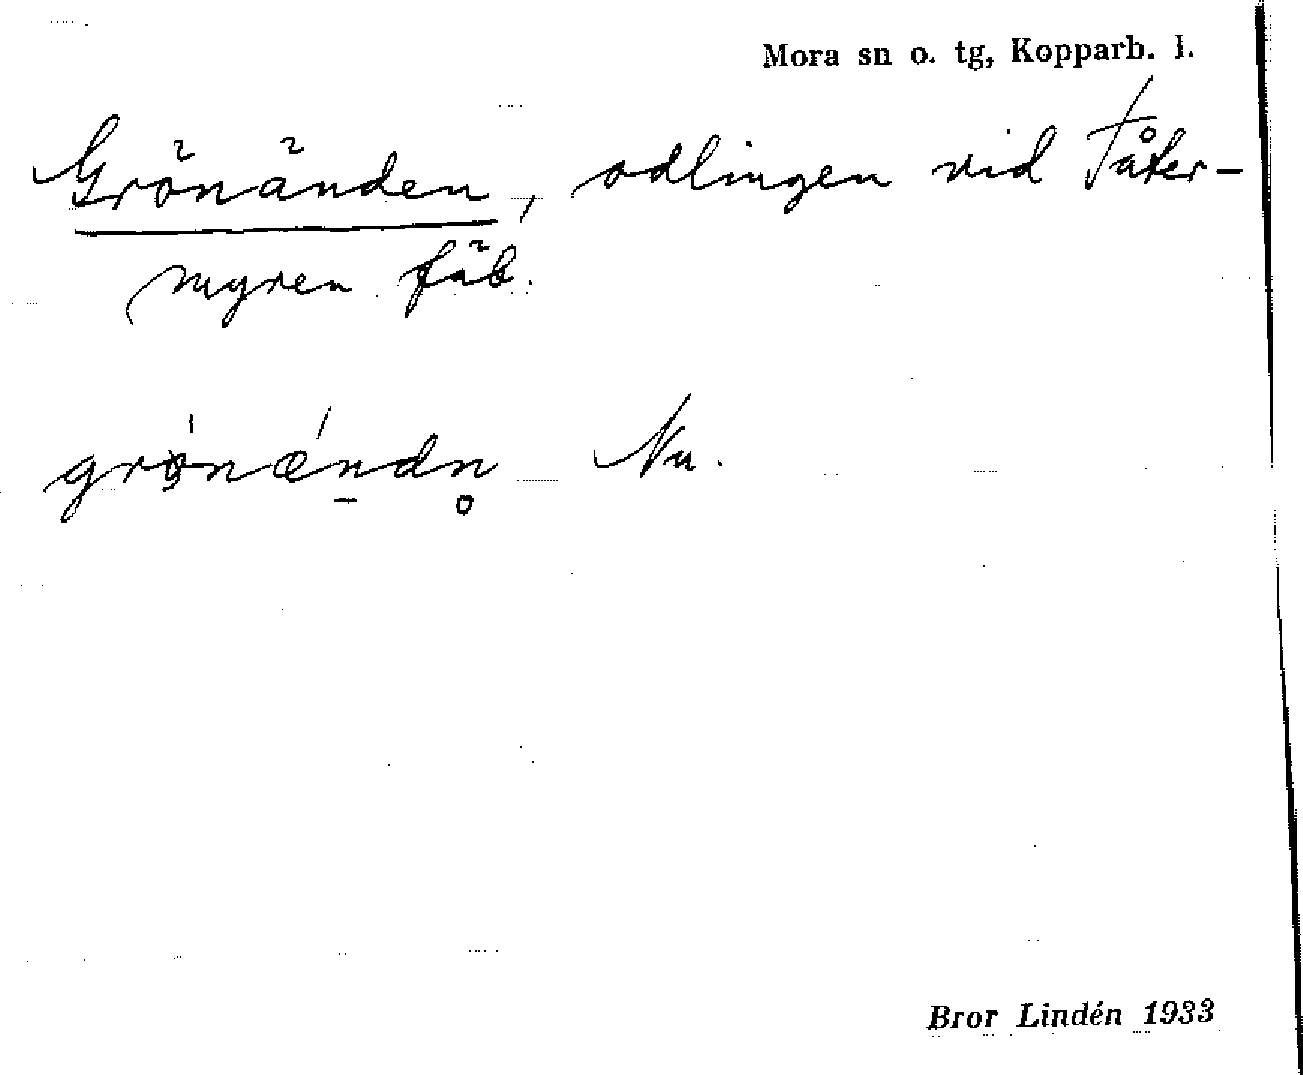 Mora sn o. tg, Kopparb. l.
Grönänden, odlingen vid Tåter-
myren fäb.
grönændn Nu.
Bror Lindén 1933